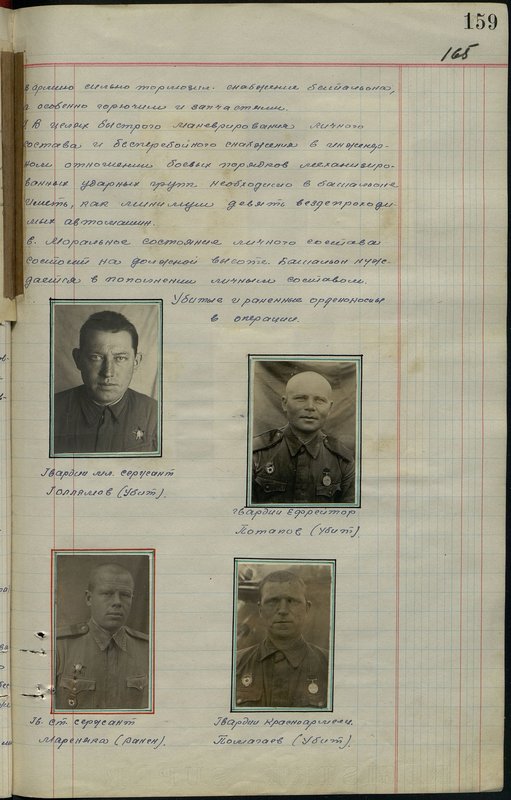 159
165
в армию сильно тормозил. снабжения батальона,
а особенно горючим и запчастями.
В целях быстрого маневрирования личного
состава и бесперебойного снабжения в инженер-
ном отношении боевых порядков механизиро-
ванных ударных групп необходимо в батальоне
иметь, как минимум девять вездепроходи-
мых автомашин.
в. Моральное состояние личного состава
состоит на должной высоте. Батальон нуж-
дается в пополнении личным составом.
Убитые и раненные орденоносцы
в операции.
Гвардии мл. сержант
Голлямов (Убит).
Гвардии Ефрейтор
Потапов (Убит).
Гв. ст. сержант
Маренька (ранен).
Гвардии Красноармеец.
Помагаев (Убит).